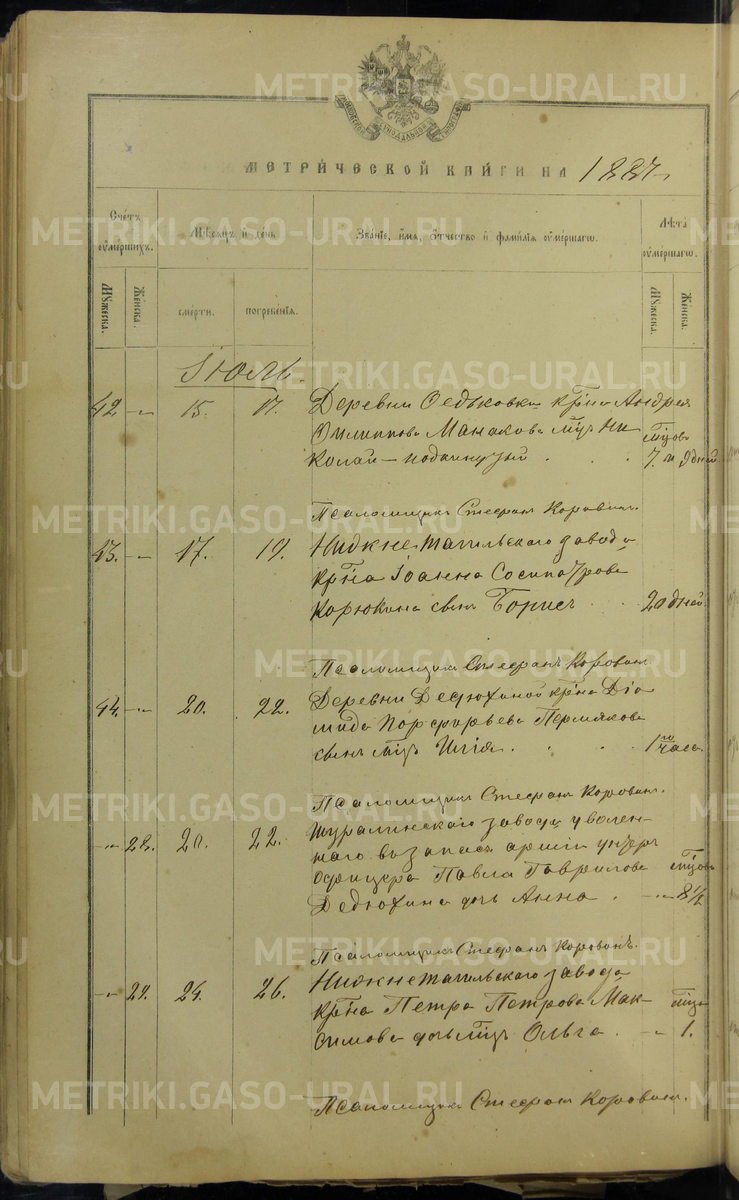 МЕТРИ́ЧЕСКОЙ КНИ́ГИ НА 1887
Сче́тъ оуме́ршихъ.
Мѣ́сяцъ и де́нь
Зва́нїе, и́мя, о́тчество и фами́лїя оуме́ршагѡ.
Лѣ́та оуме́ршагѡ.
Му́жеска.
Же́нска.
сме́рти.
погребе́нїя.
Му́жеска.
Же́нска.
Іюль.
42. -"- 15. 17. Деревни Федьковки кр-на Андрея
Филиппова Манакова Ни
колай - . . . 7. и 9 дней
Псаломщикъ Стефанъ Коровинъ.
43. -"- 17. 19. Нижне-Тагильскаго завода
кр-на Іоанна Сосипатрова
Корюкина сынъ Борисъ . . 20 дней.
Псаломщикъ Стефанъ Коровинъ.
44. -"- 20. 22. Деревни Дедюхиной кр-на Діо
мида Порфирьева Пермякова
сынъ Илія . . . 1 часа.
Псаломщикъ Стефанъ Коровинъ.
-"- 28. 20. 22. Шуралинскаго завода уволен-
наго въ запасъ арміи унтеръ
офицера Павла Гаврилова
Дедюхина дочь Анна . -"- 8½
Псаломщикъ Стефанъ Коровинъ.
-"- 29. 24. 26. Нижнетагильскаго завода
кр-на Петра Петрова Мак-
симова дочь Ольга . -"- 1.
Псаломщикъ Стефанъ Коровинъ.
METRIKI.GASO-URAL.RU